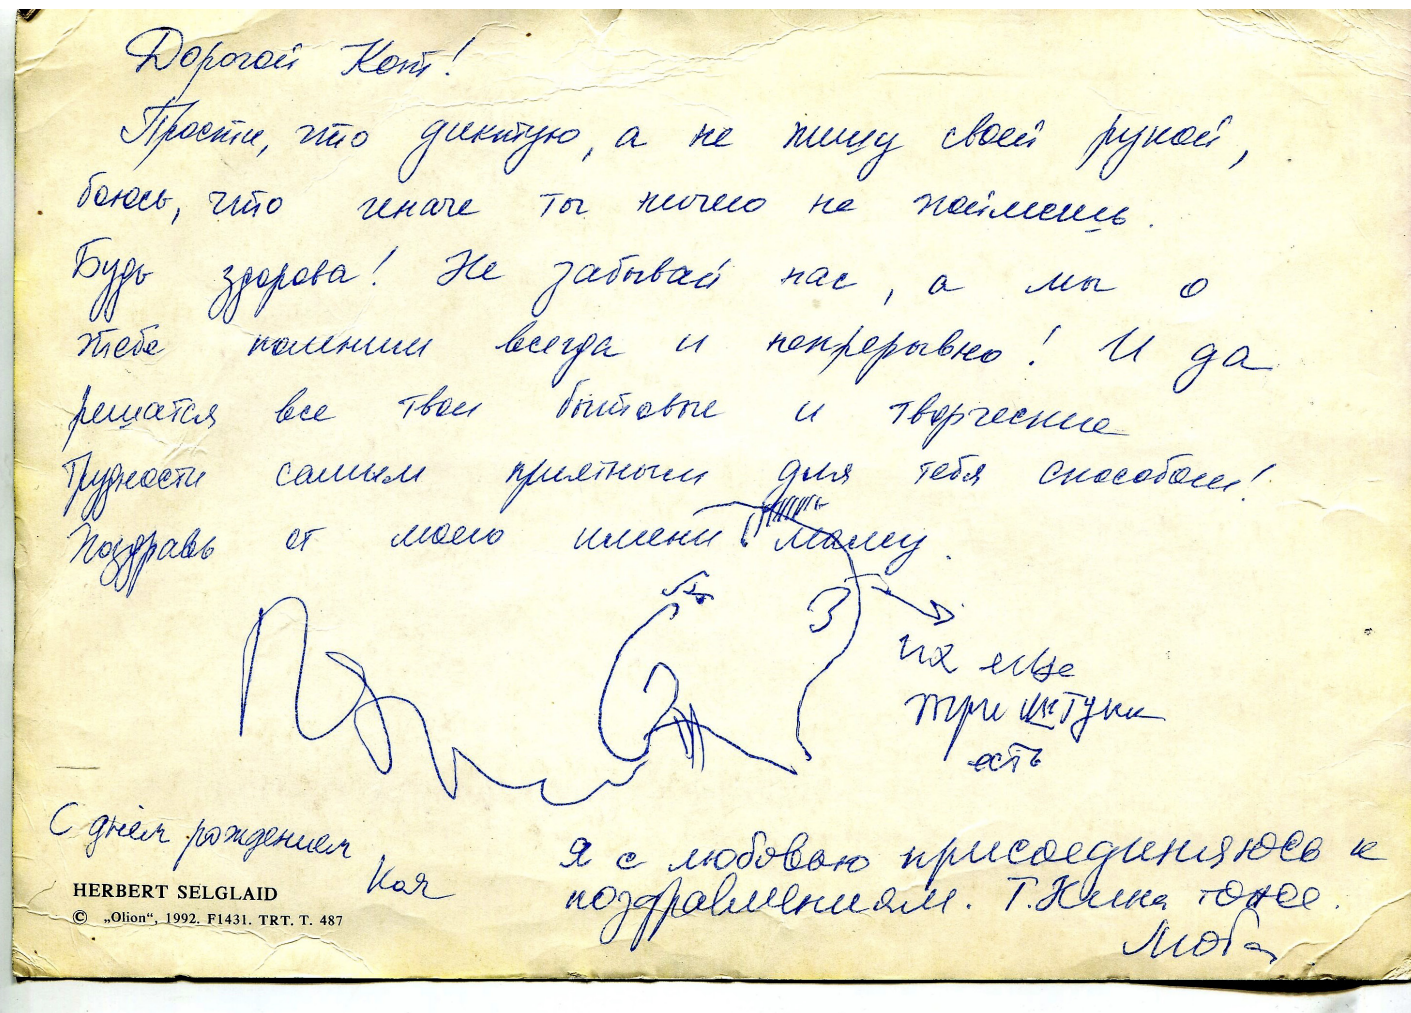 Дорогой Кот!
Прости, что диктую, а не пишу своей рукой,
боюсь, что иначе ты ничего не поймешь.
Будь здорова! Не забывай нас, а мы о
тебе помним всегда и непрерывно! И да
решатся все твои бытовые и творческие
трудности самым приятным для тебя способом!
Поздравь от моего имени маму.
их еще
три штуки
есть
С днём рождением
Я с любовью присоединяюсь к
поздравлениям. Т. Нина тоже.
Люба
HERBERT SELGLAID
© „Olion“, 1992. F1431. TRT. T. 487